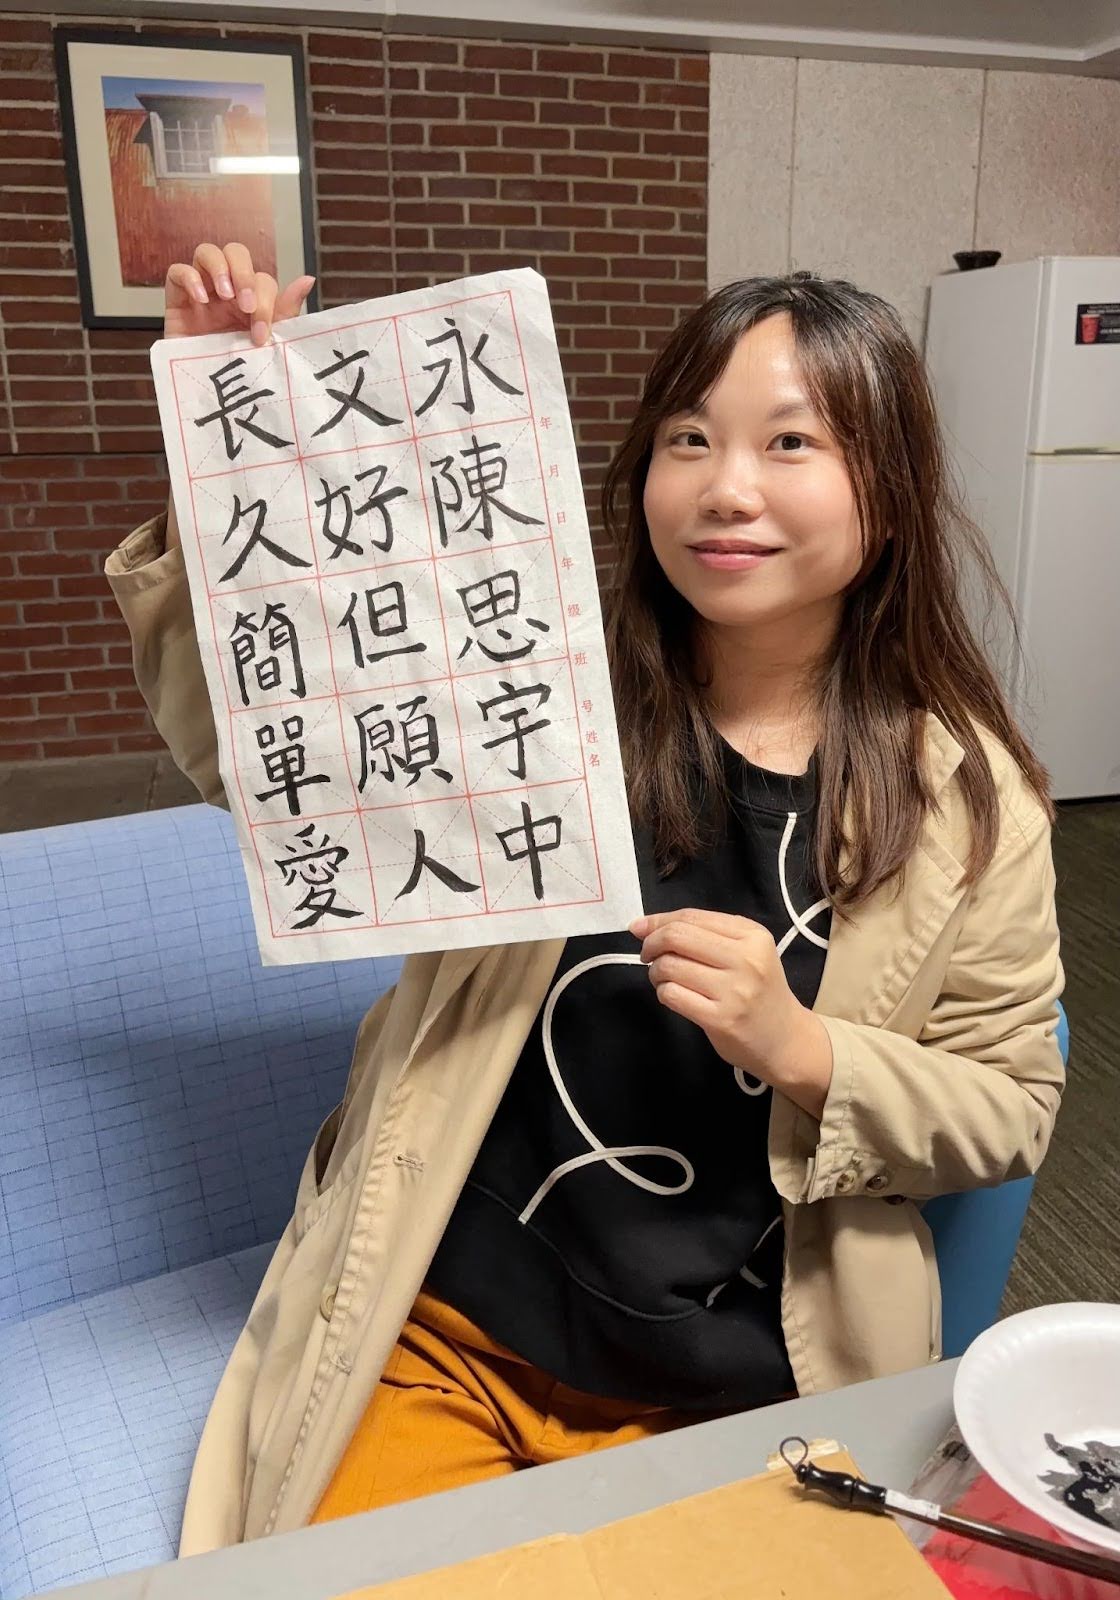 永陳思宇中
文好但願人
長久簡單愛
年 月 日 年 级 班 号 姓名